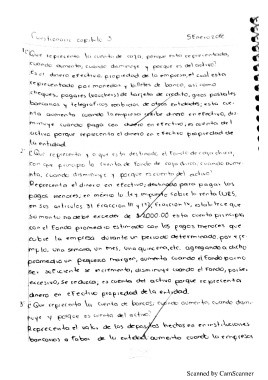 Cuestionario capitulo 3 5 Enero 2018
1.¿Que representa la cuenta de caja, porque esta representada,
cuando aumenta, cuando disminuye y porque es del activo?
Es el dinero efectivo, propiedad de la empresa, el cual esta
representado por monedas y billetes de banco, asi como
cheques, pagares (vouchers) de tarjeta de credito, giros postales
bancarios y telegraficos entidades; esta cuen-
ta aumenta cuando la empresa recibe dinero en efectivo, dis-
minuye cuando paga con dinero en efectivo, es cuenta del
activo porque representa el dinero en efectivo propiedad de
la entidad.
2. ¿Que representa y a que esta destinado el fondo de caja chica,
con que principio la cuenta de fondo de caja chica, cuando aumen-
ta, cuando disminuye y porque es cuenta del activo?
Representa el dinero en efectivo, destinado para pagar los
pagos menores, en monto la ley impuesto sobre la renta (LISR),
en sus articulos 31 fraccion III y 172, fraccion IV, establece que
su monto no debe exceder de $2,000.00 esta cuenta principia
con el fondo promedio estimado con los pagos menores que
cubre la empresa durante un periodo determinado, por e-
jemplo, una semana, un mes, una quincena, etc. agregando a dicho
promedio un pequeño margen, aumenta cuando el fondo por no
ser suficiente se incrementa, disminuye cuando el fondo, por ser
excesivo, se reduce, es cuenta del activo porque representa
dinero en efectivo propiedad de la entidad.
3. ¿Que representa la cuenta de bancos, cuando aumenta, cuando dismi-
nuye y porque es cuenta del activo?
Representa el valor de los depositos hechos en instituciones
bancarias a favor de la entidad aumenta cuando la empresa
Scanned by CamScanner